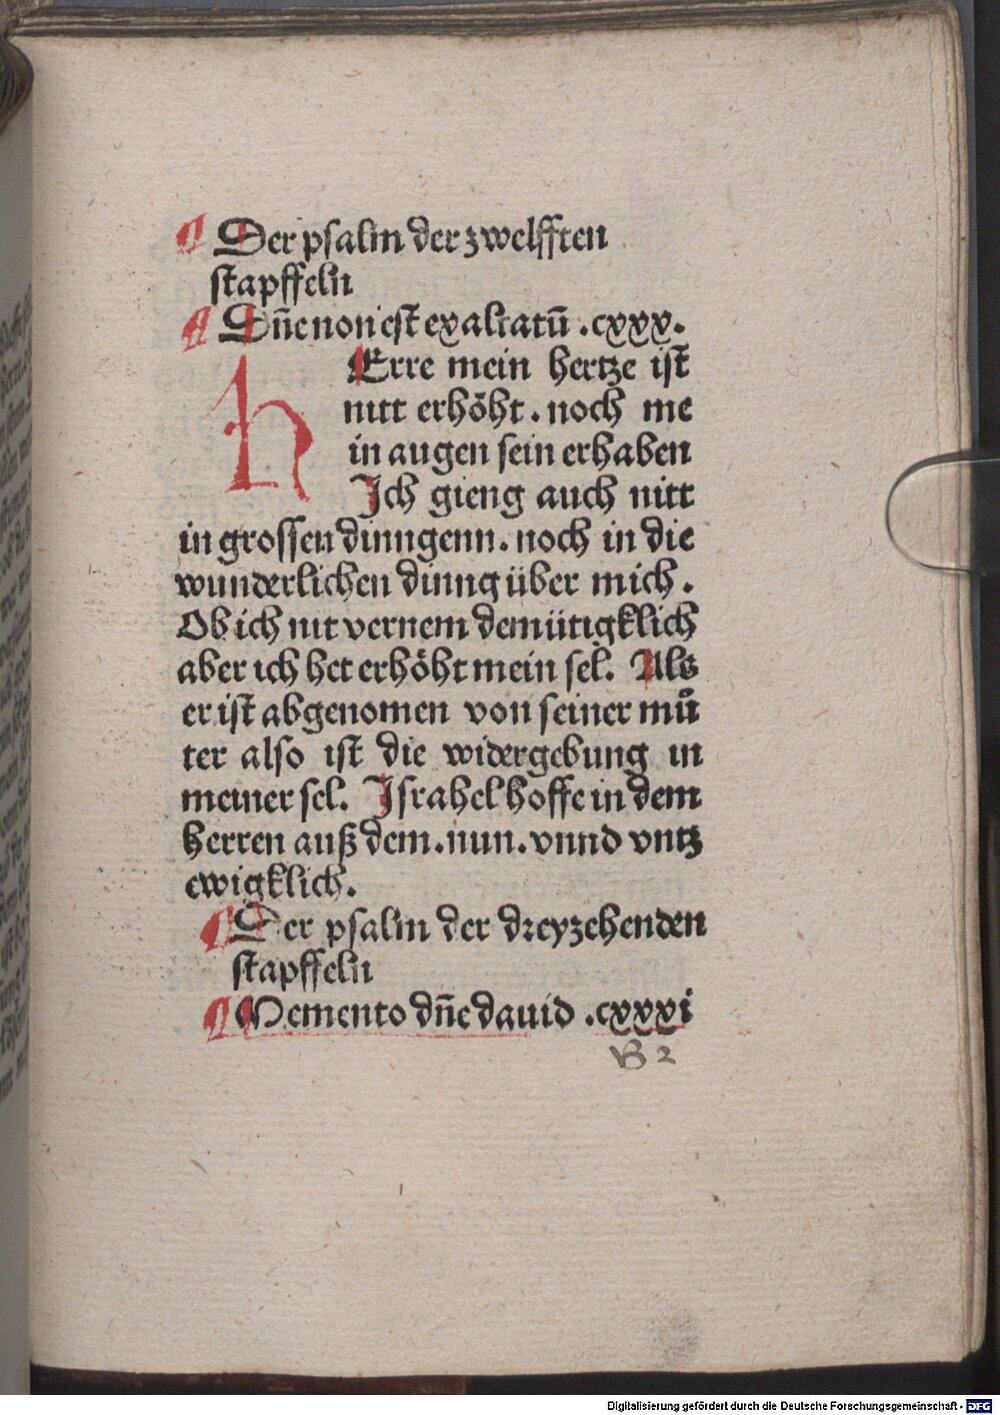 ¶ Der psalm der zwelfften
stapffeln
¶ Dñe non est exaltatū .cxxx.
hErre mein hertze ist
nitt erhöht . noch me
in augen sein erhaben
Jch gieng auch nitt
in grossen dinngenn . noch in die
wunderlichen dinng über mich .
Ob ich nit vernem demütigklich
aber ich het erhöht mein sel. Als
er ist abgenomen von seiner mů
ter also ist die widergebung in
meiner sel. Jsrahel hoffe in dem
herren auß dem . nun . vnnd vntz
ewigklich .
¶ Der psalm der dreyzehenden
stapffeln
¶ Memento dñe dauid .cxxxi
B 2
Digitalisierung gefördert durch die Deutsche Forschungsgemeinschaft - DFG